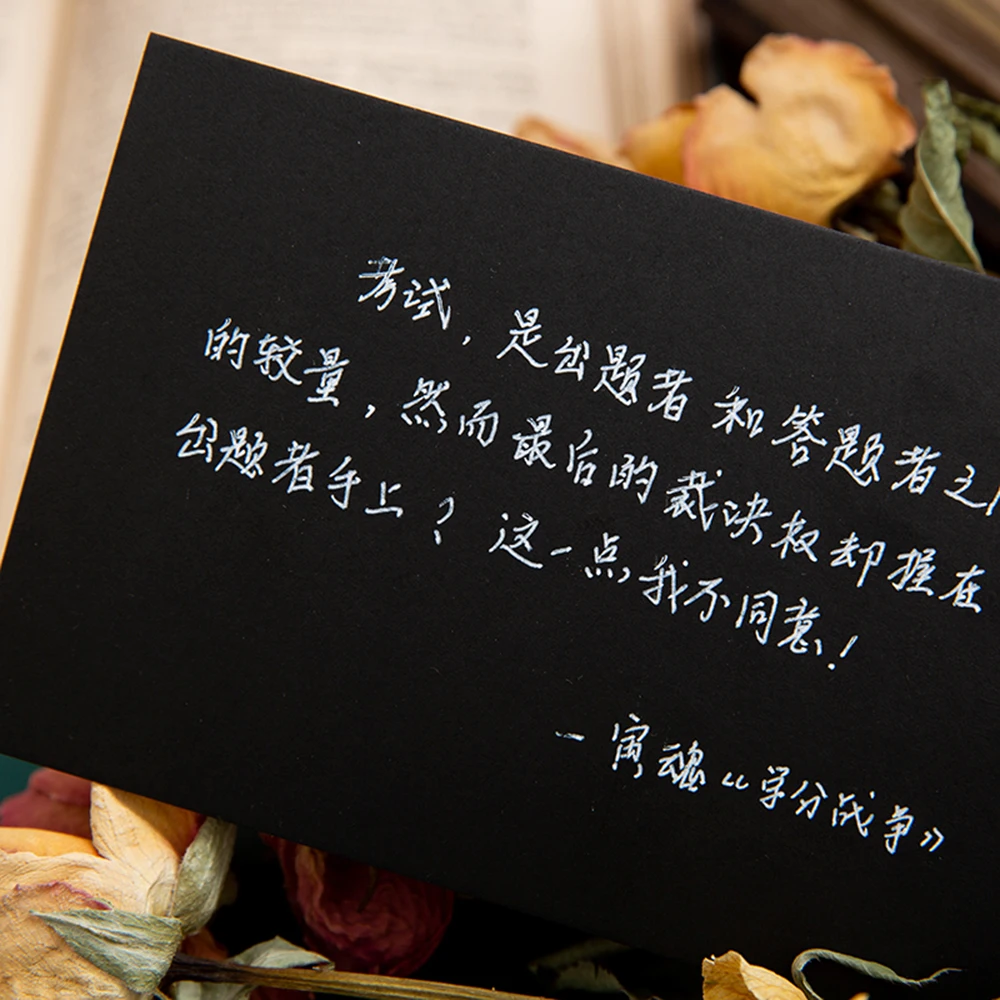 考试,是出题者和答题者之间
的较量,然而最后的裁决权却握在
出题者手上?这一点,我不同意!
—寅魂《学分战争》